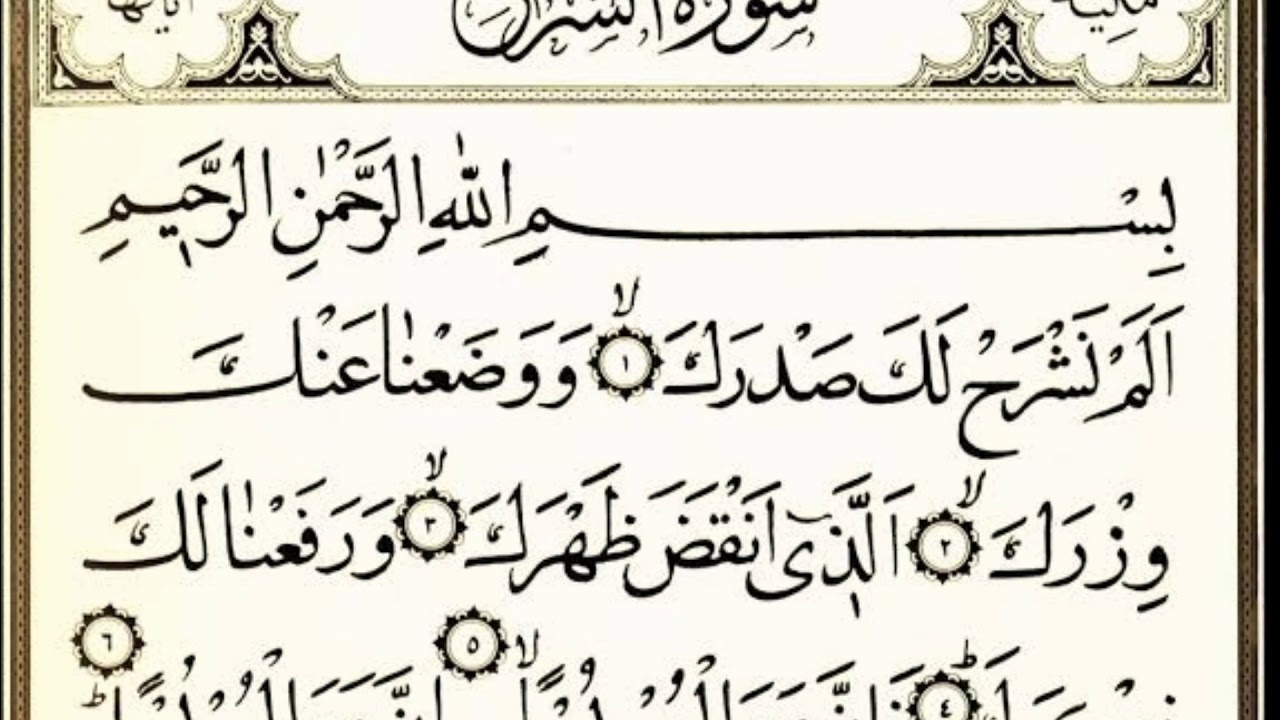 مكية سورة الشرح آياتها
بِسْمِ اللّٰهِ الرَّحْمٰنِ الرَّحِيمِ
اَلَمْ نَشْرَحْ لَكَ صَدْرَكَ ۙ ﴿١﴾ وَوَضَعْنٰا عَنْكَ
وِزْرَكَ ۙ ﴿٢﴾ اَلَّذٖٓى اَنْقَضَ ظَهْرَكَ ۙ ﴿٣﴾ وَرَفَعْنٰا لَكَ
﴿٤﴾ ﴿٥﴾ ﴿٦﴾